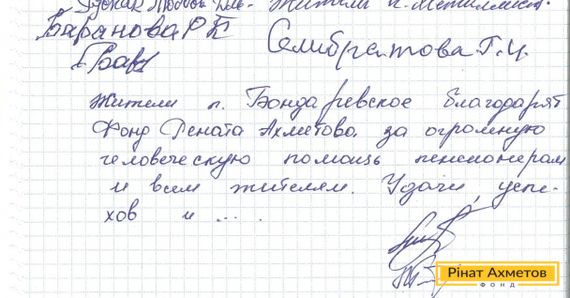 Жители п.
Баранова Р К Семибратова Г. И.
Жители п. Бондаревское благодарят
Фонд Рената Ахметова за огромную
человеческую помощь пенсионерам
и всем жителям. Удачи, успе-
хов и ....
Рінат Ахметов
ФОНД